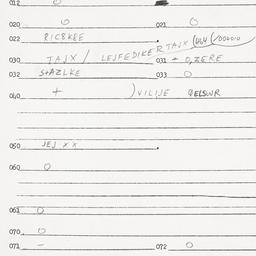 012 0
020 0 021 0
022
030 TAJX / LEJFEDIKERTAJX 031 + 0,ZERE
032 STAZLKE 033 0
040 + ) VILIJE
050 JEJ XX
060 0
061 0
070 0
071 - 072 0